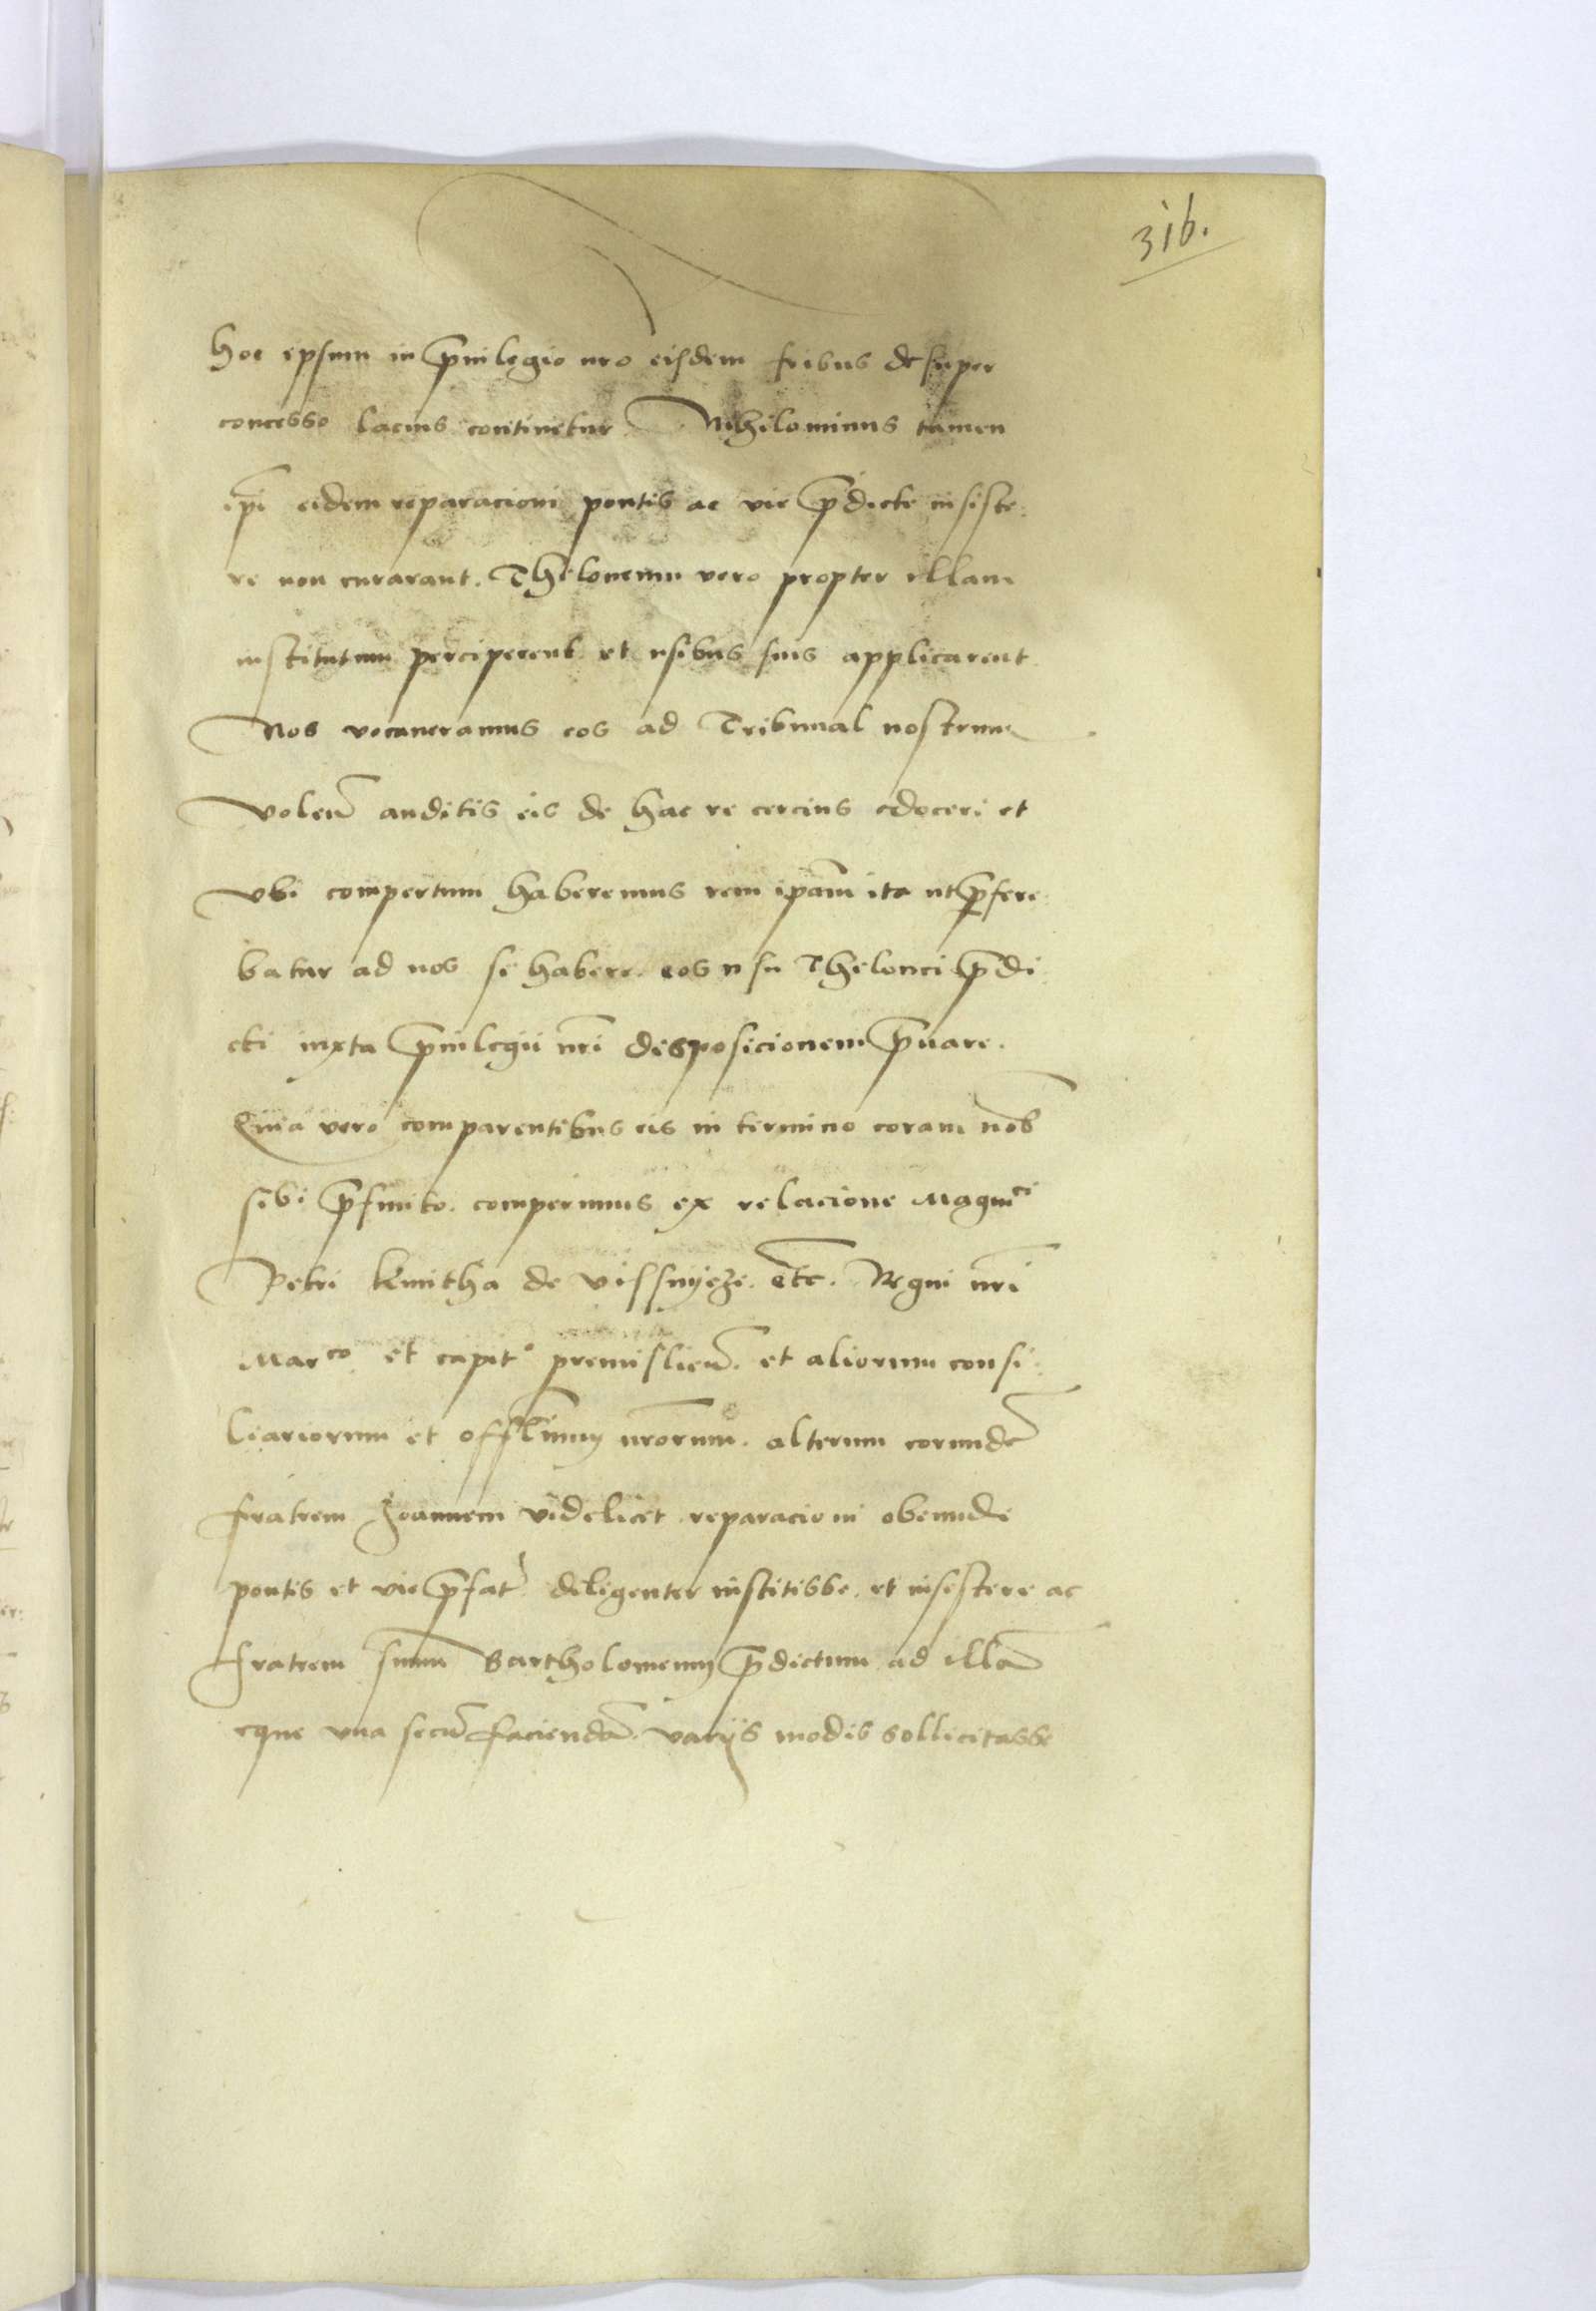 316.
hoc ipsum in priuilegio nro eisdem fribus desuper
concesso lacius continetur Nihilominus tamen
ipi eidem reparacioni pontis ac vie predicte insiste
re non curarant. Theloneum vero propter illam
institutum perciperent et usibus suis applicarent
Nos vocaueramus eos ad Tribunal nostrum
volen auditis eis de hac re cercius edoceri et
vbi compertum haberemus rem ipam ita ut prefere
batur ad nos se habere. eos usu Thelonei predi
cti iuxta priuilegii nri disposicionem priuare.
Quia vero comparentibus eis in termino coram nob
sibi prefinito. comperimus ex relacione Magnici
Petri kmitha de vissnyeze. etc. Regni nri
Marco et capito premislien. et aliorum consi
liariorum et offlium nrorum. alterum eorunde
fratrem Joannem videlicet reparacioni obeunde
pontis et vie prefat diligenter institisse. et insistere ac
fratrem suum Bartholomeum predictum ad illa
eque vna secu faciendam. varijs modis sollicitasse